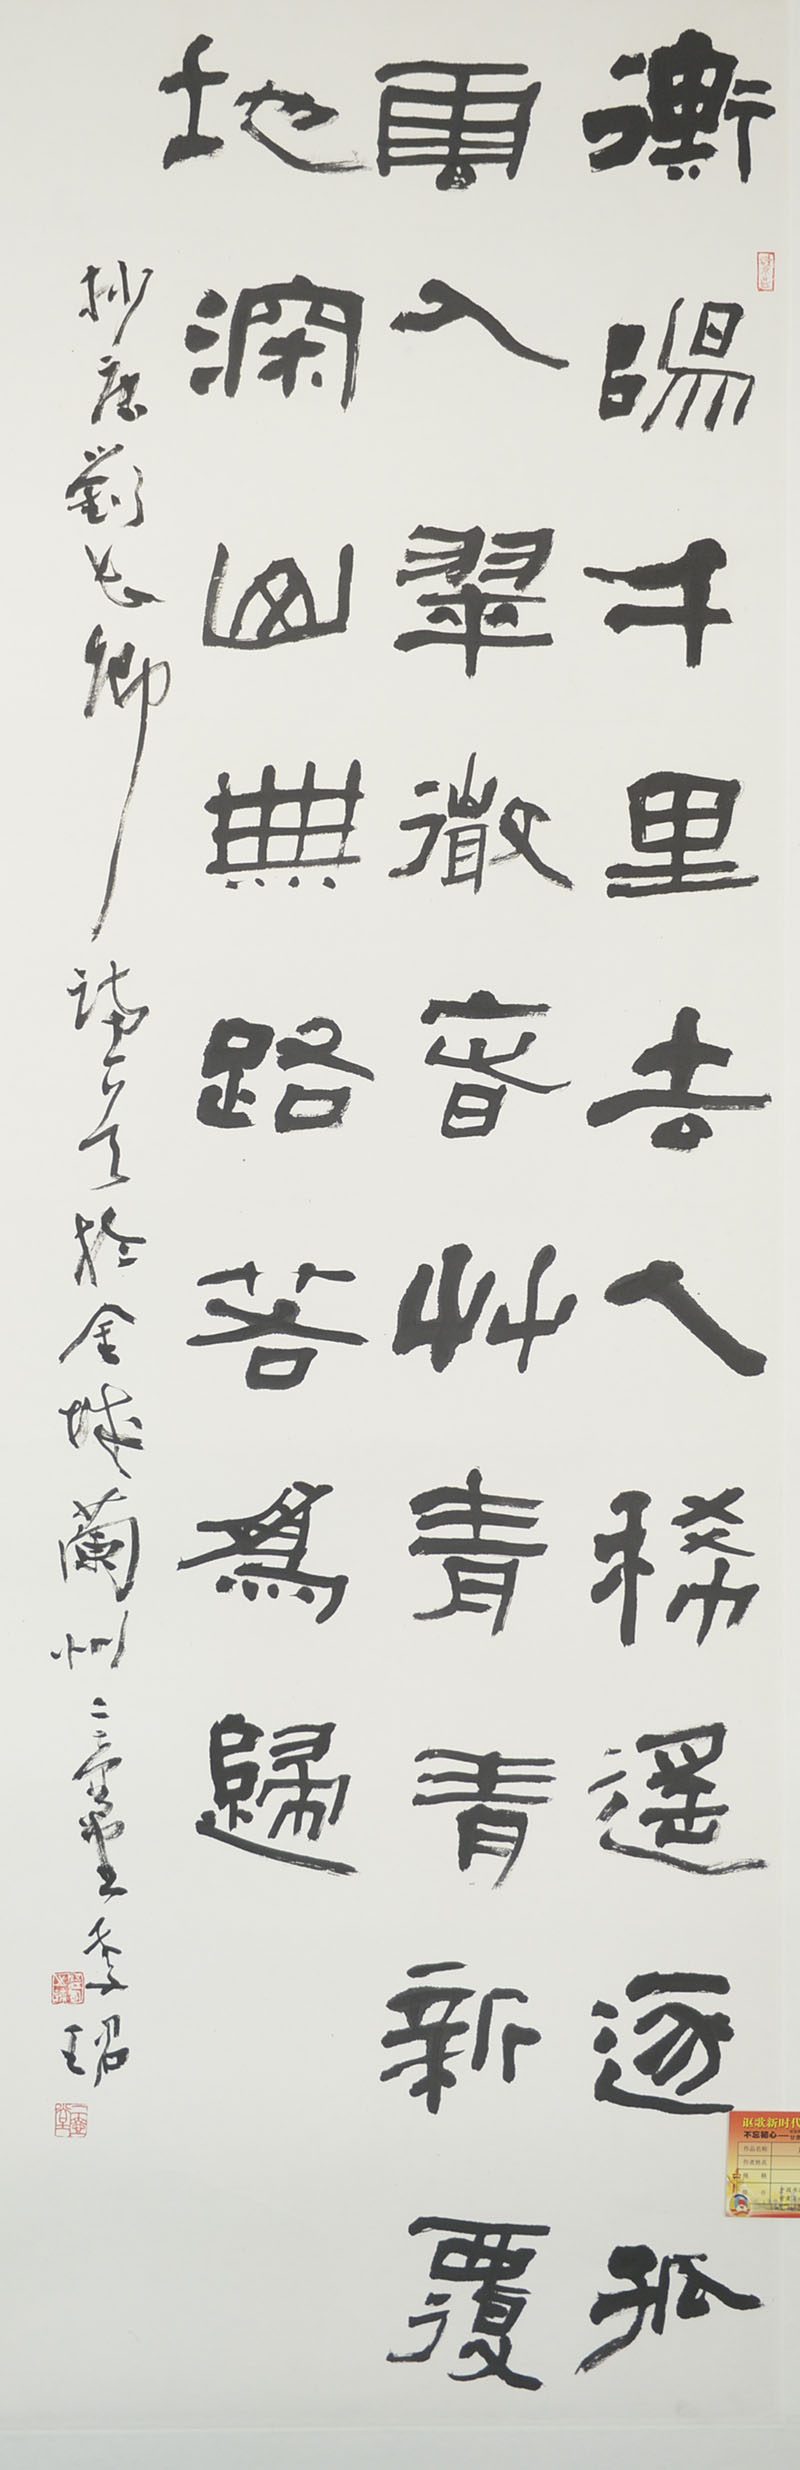 衡陽千里去人稀遙逐孤
雲入翠微春草青青新覆
地深山無路若為歸
抄唐劉長卿詩一首於金城蘭州 堂李
讴歌新时代
不忘初心
作品名称
作者姓名